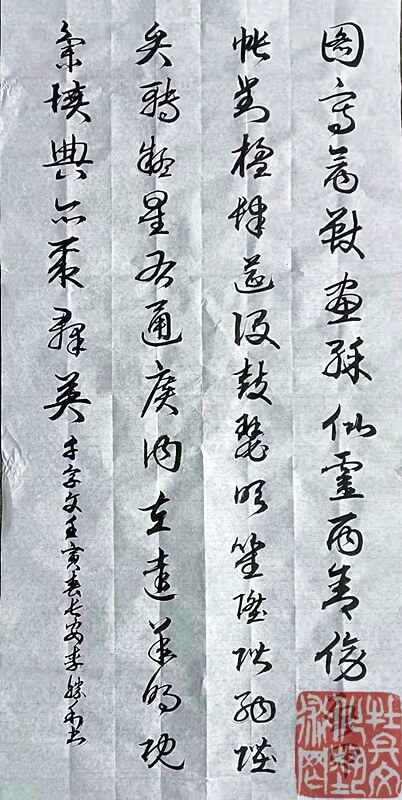 圖寫禽獸畫彩仙靈丙舍傍啟甲
帳對楹肆筵設鼓瑟吹笙陞階納陛
弁轉疑星右通廣內左達承明既
集墳典亦聚群英
千字文壬寅春長安李